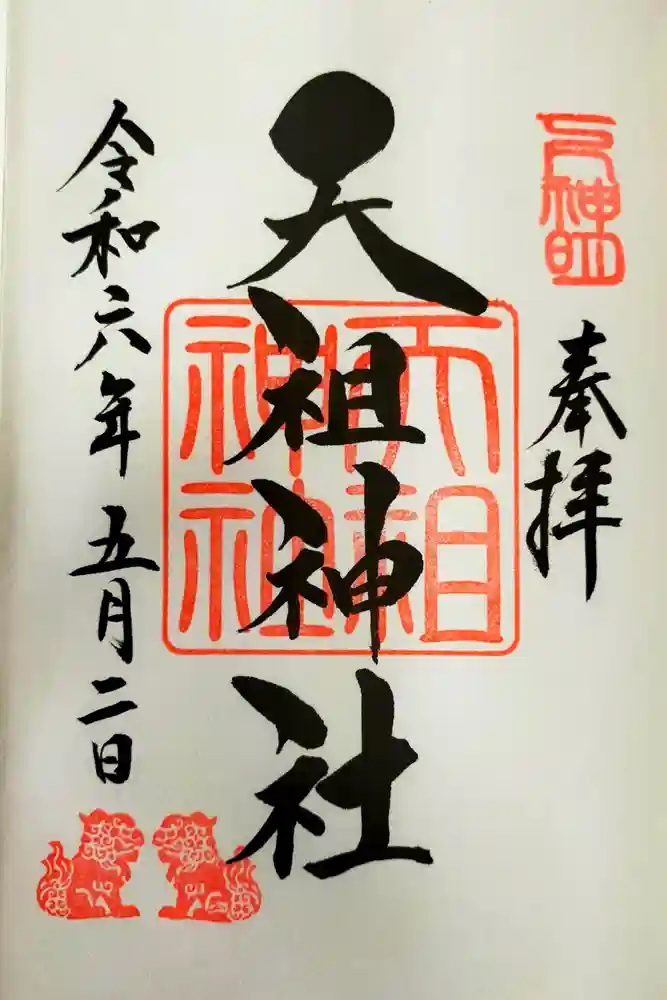 下神明
奉拝
天祖神社
天祖
神社
令和六年五月二日